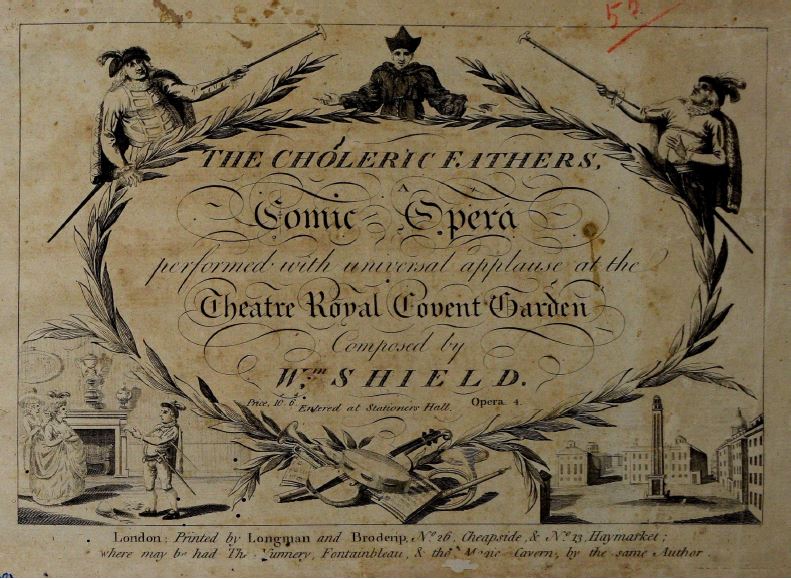 52
THE CHOLERIC FATHERS,
A
Comic Opera
performed with universal applause at the
Theatre Royal Covent Garden
Composed by
Wm. SHIELD.
Price, 10s 6d Entered at Stationers Hall. Opera 4.
London: Printed by Longman and Broderip, No. 26, Cheapside, & No. 13, Haymarket;
where may be had The Nunnery, Fontainbleau, & the Magic Cavern, by the same Author.